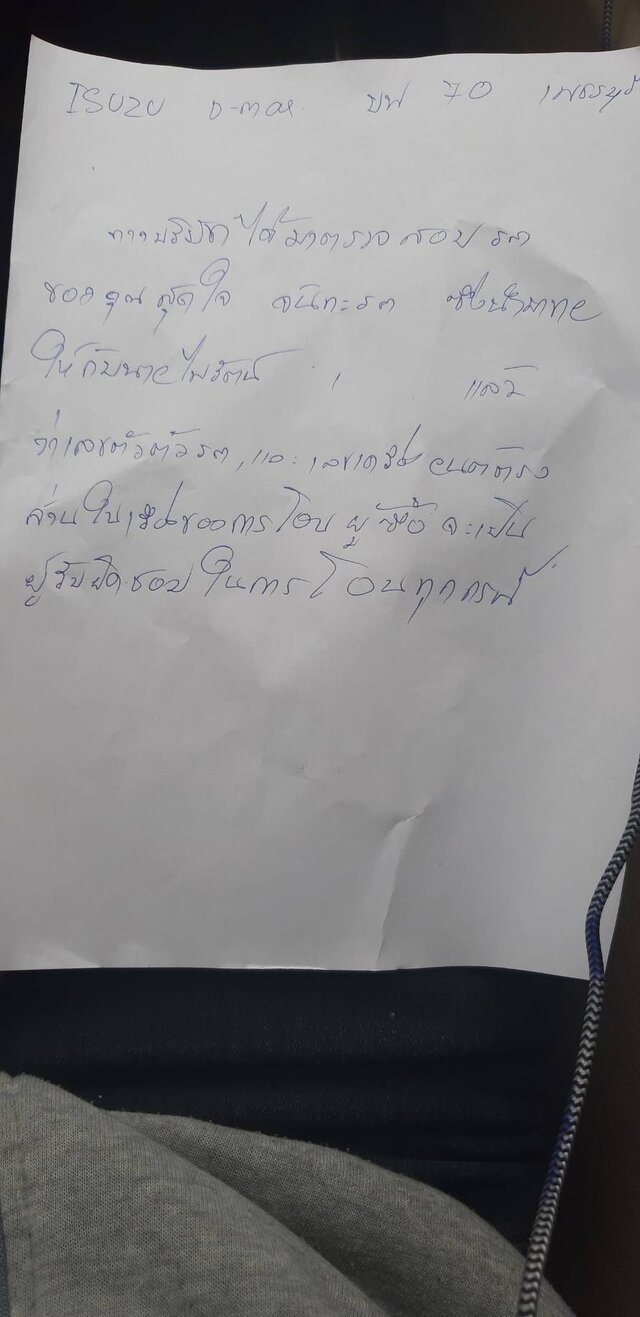 ISUZU D-max บพ 70 เพชรบุรี
ทางบริษัทได้มาตรวจสอบรถ
ของคุณสุดใจ จันทะรถ ซึ่งนำมาขาย
ให้กับนายไพรัตน์ , แล้ว
ว่าเลขตัวถังรถ, และเลขเครื่องยนต์ตรง
ส่วนในเรื่องของการโอนผู้ซื้อจะเป็น
ผู้รับผิดชอบในการโอนทุกกรณี